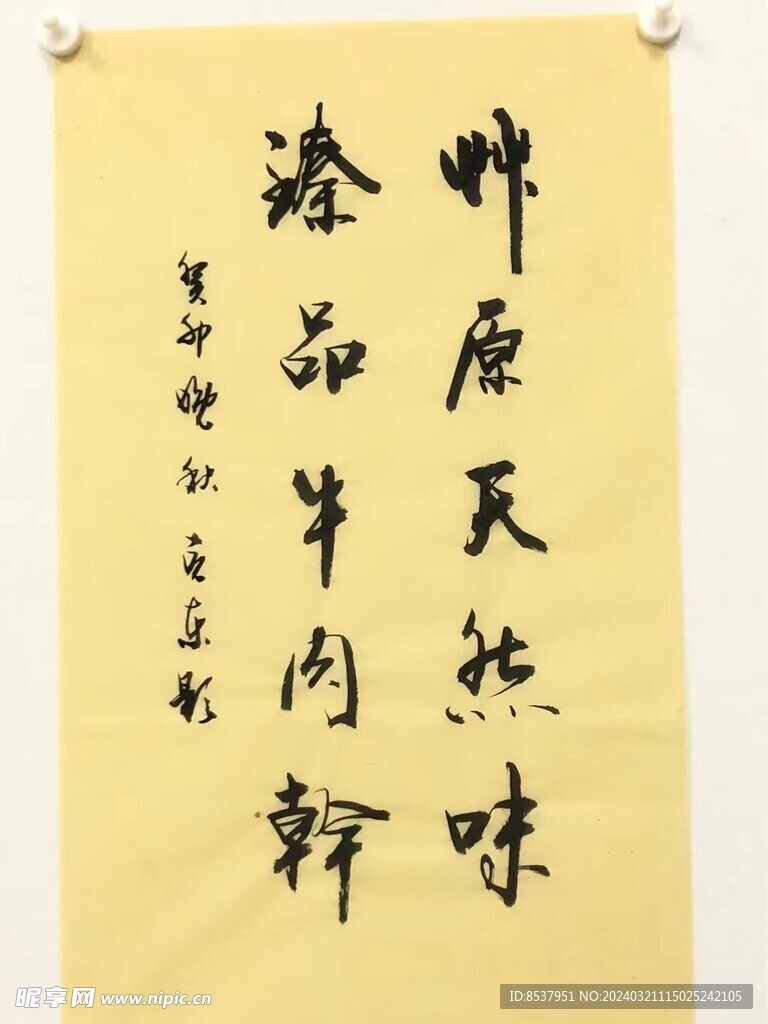 艸原天然味
臻品牛肉幹
癸卯晚秋克東題
昵享网 www.nipic.cn
ID:8537951 NO:20240321115025242105